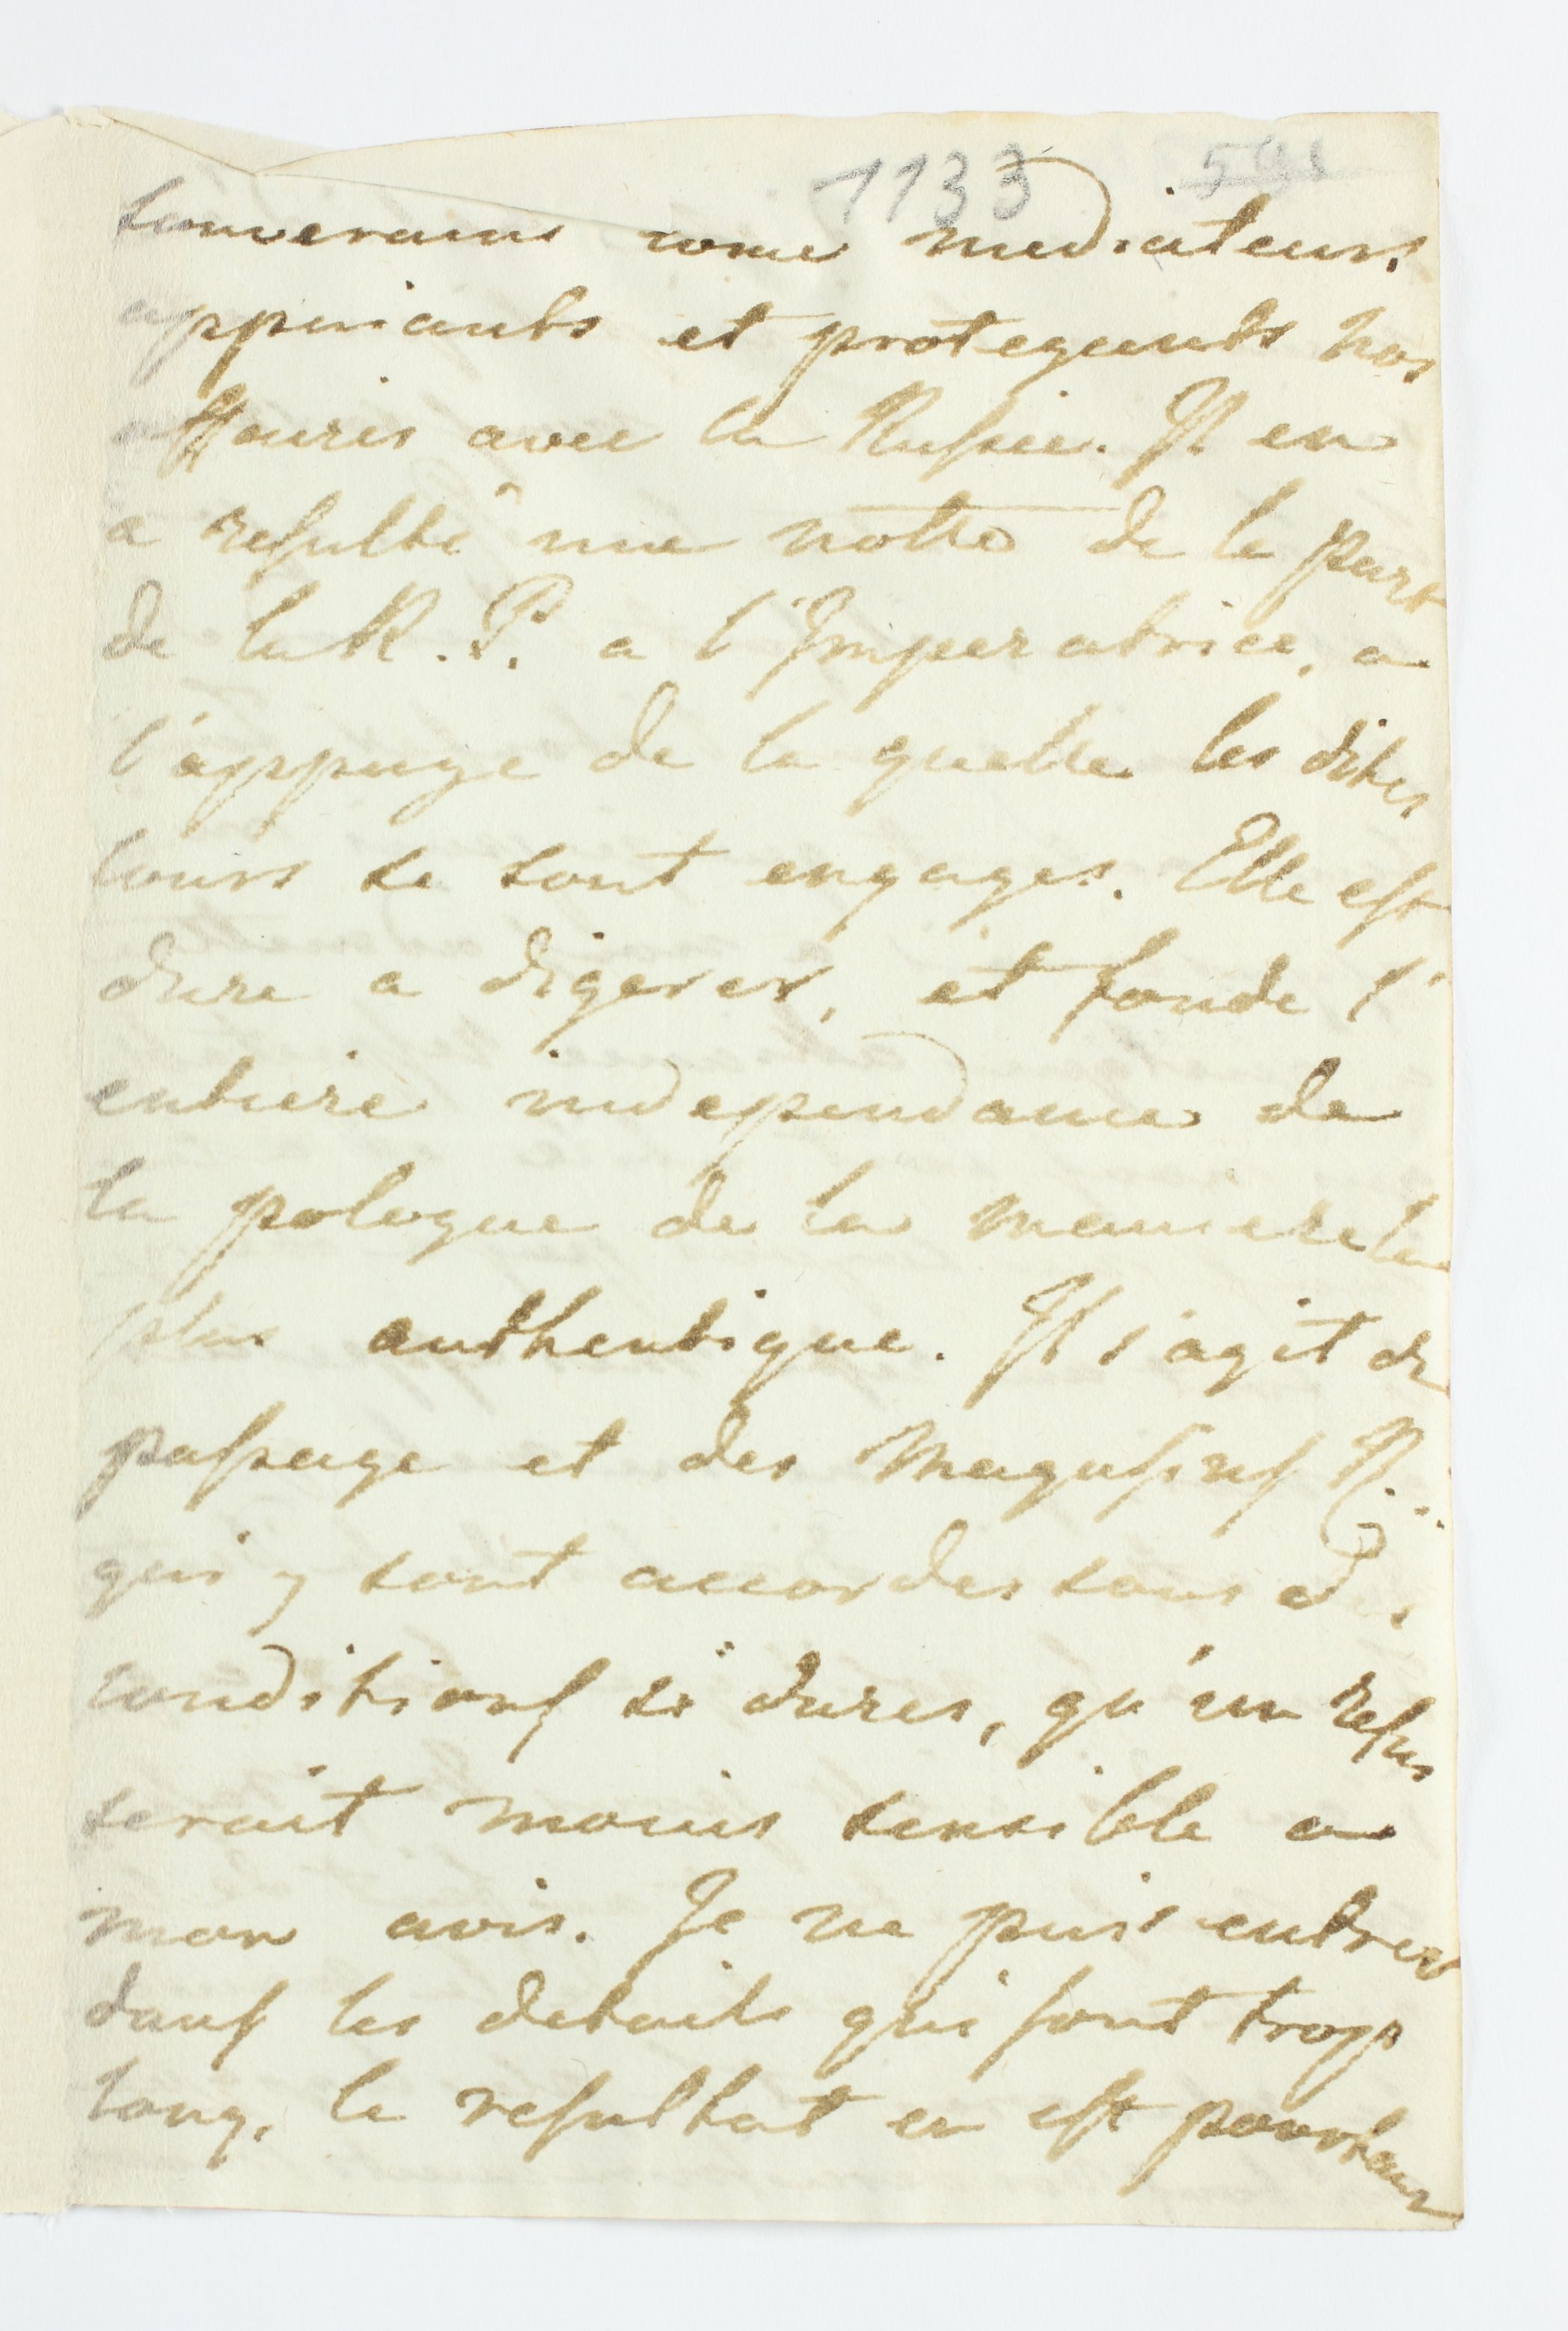 1133 591
souverains come mediateurs,
appuiants et protegeants nos
affaires avec la Russie. Il en
a resulté une notte de la part
de la R. P. a l'Imperatrice, a
l'appuye de la quelle les dites
cours se sont engages. Elle est
dure a digerer, et fonde l'
entiere independance de
la pologne de la maniere la
plus authentique. Il s'agit du
passage et des Magasins R..
qui y sont accordes sous des
conditions si dures, qu'un refus
serait moins sensible a
mon avis. Je ne puis entrer
dans les details qui sont trop
long, le resultat en est pourtant